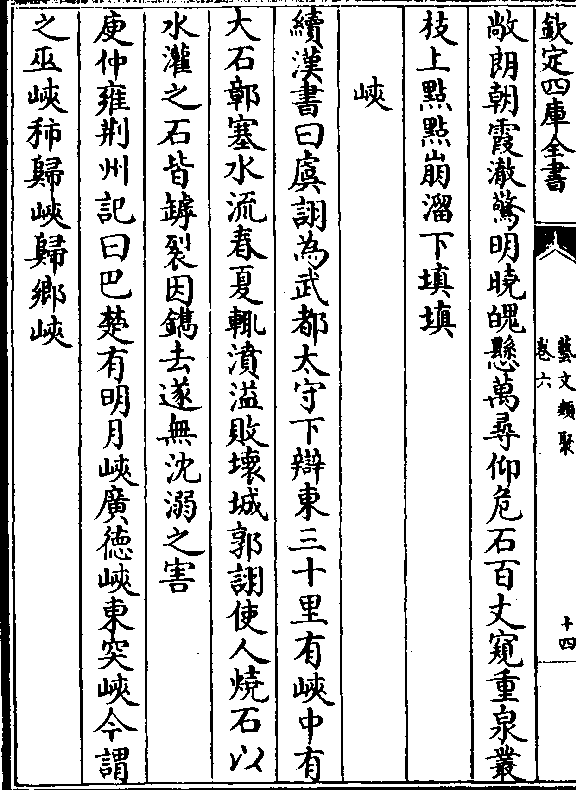 欽定四庫全書
藝文類聚
卷六
十四
敞朗朝霞澈驚明曉魄懸萬尋仰危石百丈窺重泉叢
枝上點點崩溜下填填
峽
續漢書曰虞詡為武都太守下辯東三十里有峽中有
大石鄣塞水流春夏輒濆溢敗壞城郭詡使人燒石以
水灌之石皆罅裂因鐫去遂無沈溺之害
庾仲雍荆州記曰巴楚有明月峽廣德峽東突峽今謂
之巫峽秭歸峽歸鄉峽